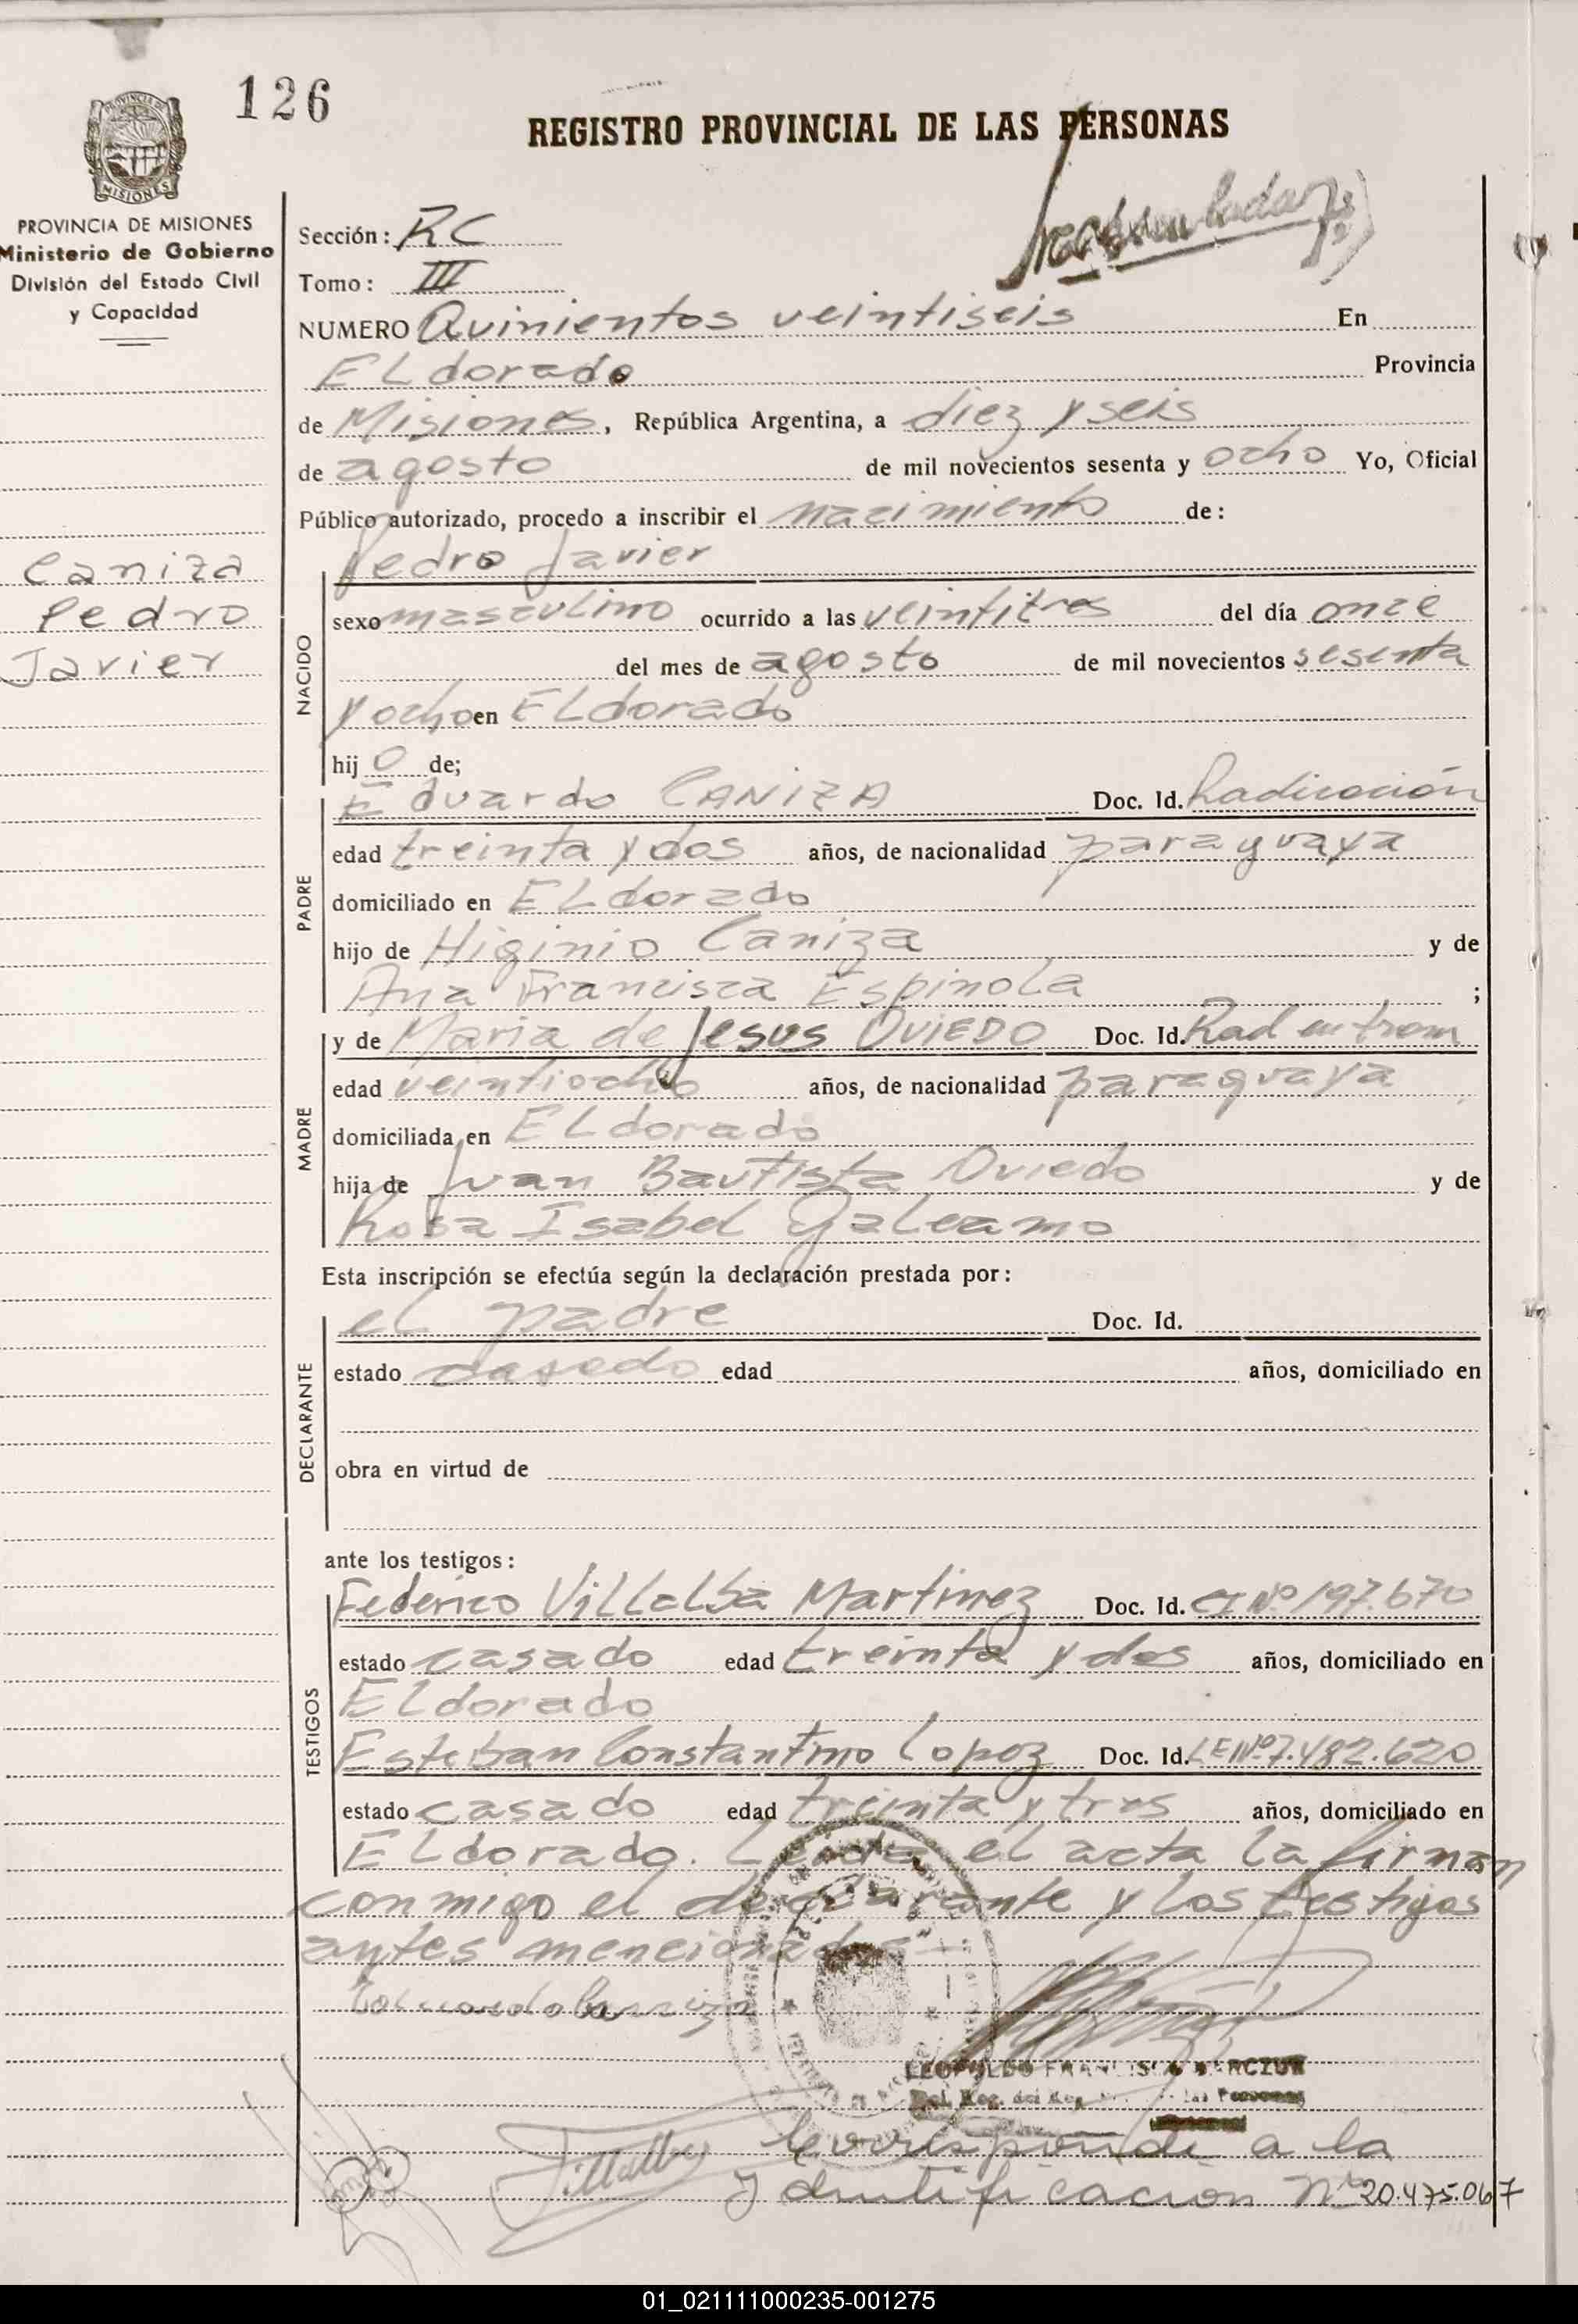 126
REGISTRO PROVINCIAL DE LAS PERSONAS
PROVINCIA DE
MISIONES
PROVINCIA DE MISIONES
Ministerio de Gobierno
División del Estado Civil
y Capacidad
Caniza
Pedro
Javier
Sección: RC
Tomo: III
NUMERO Quinientos veintiseis En
ELdorado Provincia
de Misiones, República Argentina, a diez y seis
de agosto de mil novecientos sesenta y ocho Yo, Oficial
Público autorizado, procedo a inscribir el nacimiento de:
Pedro Javier
NACIDO
sexo masculino ocurrido a las veintitres del día once
del mes de agosto de mil novecientos sesenta
y ocho en ELdorado
hijo de;
PADRE
Eduardo CANIZA Doc. Id. Radicación
edad treinta y dos años, de nacionalidad paraguaya
domiciliado en ELdorado
hijo de Higinio Caniza y de
Ana Francisca Espinola ;
MADRE
y de Maria de Jesus OVIEDO Doc. Id. Rad en tram
edad veintiocho años, de nacionalidad paraguaya
domiciliada en ELdorado
hija de Juan Bautista Oviedo y de
Rosa Isabel Galeano
Esta inscripción se efectúa según la declaración prestada por:
DECLARANTE
el padre Doc. Id.
estado casado edad años, domiciliado en
obra en virtud de
ante los testigos:
TESTIGOS
Federico Villalba Martinez Doc. Id. CI Nº 197.670
estado casado edad treinta y dos años, domiciliado en
ELdorado
Esteban Constantino Lopez Doc. Id. LE Nº 7.482.620
estado casado edad treinta y tres años, domiciliado en
ELdorado. Leida el acta la firman
conmigo el declarante y los testigos
antes mencionados
LEOPOLDO FRANCISCO
Corresponde a la
Identificación Nº 20.475.067
01_021111000235-001275